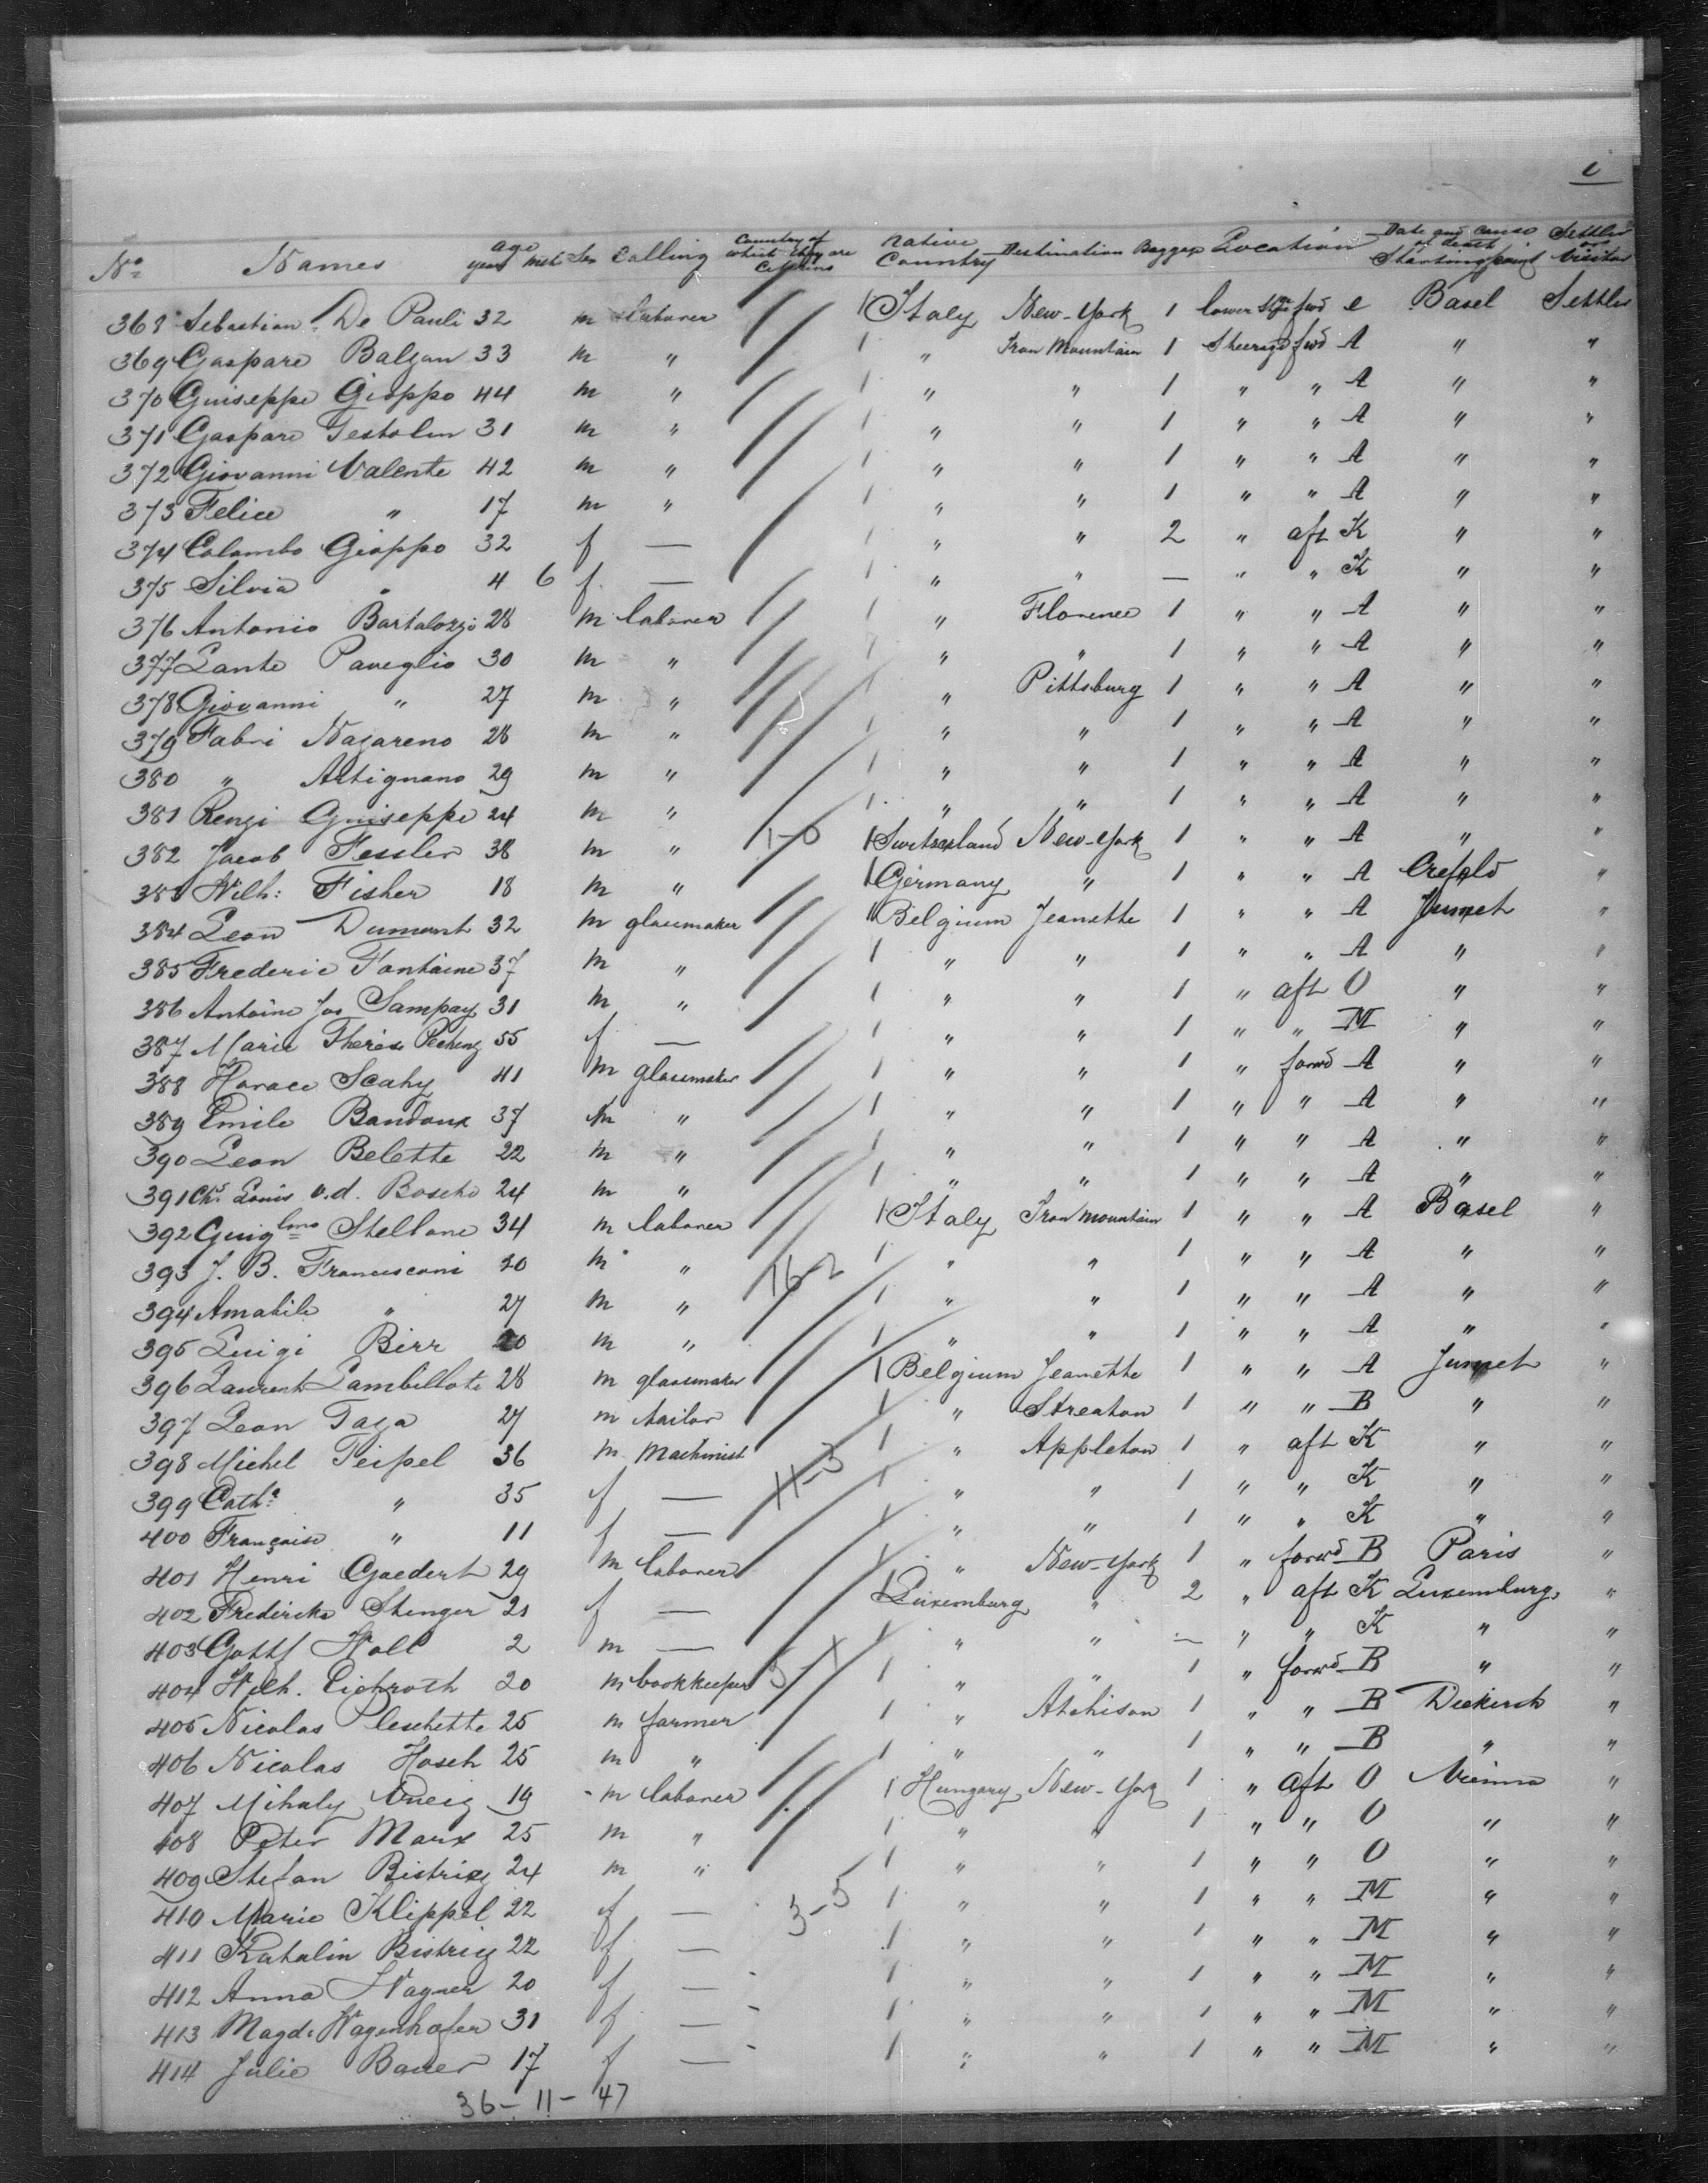 i
No Names age years mth Sex Calling Country of which they are Citizens Native Country Destination Baggage Location Date and cause of death Starting point Settler or Visitor
368 Sebastian De Pauli 32 m laborer 1 Italy New-York 1 lower stge fwd e Basel Settler
369 Gaspare Balzan 33 m " 1 " Iron Mountain 1 Steerage fwd A " "
370 Guiseppe Gioppo 44 m " 1 " " 1 " " A " "
371 Gaspare Testolin 31 m " 1 " " 1 " " A " "
372 Giovanni Valente 42 m " 1 " " 1 " " A " "
373 Felice " 17 m " 1 " " 1 " " A " "
374 Colombo Gioppo 32 f — 1 " " 2 " aft K " "
375 Silvia " 4 6 f — 1 " " — " " K " "
376 Antonio Bartalozzi 28 m laborer 1 " Florence 1 " " A " "
377 Sante Paveglio 30 m " 1 " " 1 " " A " "
378 Giovanni " 27 m " 1 " Pittsburg 1 " " A " "
379 Fabri Nazareno 28 m " 1 " " 1 " " A " "
380 " Artignano 29 m " 1 " " 1 " " A " "
381 Renzi Guiseppe 24 m " 1 " " 1 " " A " "
382 Jacob Fessler 38 m " 1-0 1 Switzerland New-York 1 " " A " "
383 Wilh: Fisher 18 m " 1 Germany " 1 " " A Crefeld "
384 Leon Dumont 32 m glassmaker 1 Belgium Jeanette 1 " " A Jumet "
385 Frederic Fontaine 37 m " 1 " " 1 " " A " "
386 Antoine Jos Sampay 31 m " 1 " " 1 " aft O " "
387 Marie Therese 55 f — 1 " " 1 " " M " "
388 Horace Scahy 41 m glassmaker 1 " " 1 " forwd A " "
389 Emile Bandoux 37 m " 1 " " 1 " " A " "
390 Leon Belette 22 m " 1 " " 1 " " A " "
391 Chs Louis v.d. Bosche 24 m " 1 " " 1 " " A " "
392 Guiglmo Stellane 34 m laborer 1 Italy Iron mountain 1 " " A Basel "
393 J. B. Francesconi 20 m " 16-2 1 " " 1 " " A " "
394 Amabile " 27 m " 1 " " 1 " " A " "
395 Luigi Birr m " 1 " " 1 " " A " "
396 Laurent Lambillote 28 m glassmaker 1 Belgium Jeanette 1 " " A Jumet "
397 Leon Taga 27 m tailor 1 " Streaton 1 " " B " "
398 Michel Feipel 36 m Machinist 1 " Appleton 1 " aft K " "
399 Catha " 35 f — 11-3 1 " " 1 " " K " "
400 Françoise " 11 f — 1 " " 1 " " K " "
401 Henri Goedert 29 m laborer 1 " New-York 1 " forwd B Paris "
402 Fredericke Stenger 21 f — 1 Luxemburg " 2 " aft K Luxemburg "
403 Gottf Holl 2 m — 1 " " — " " K " "
404 Wilh. Eichroth 20 m bookkeeper 1 " " 1 " forwd B " "
405 Nicolas Pleschette 25 m farmer 1 " Atchison 1 " " B Diekirch "
406 Nicolas Hosch 25 m " 1 " " 1 " " B " "
407 Mihaly 19 m laborer 1 Hungary New-York 1 " aft O Vienna "
408 Peter Marx 25 m " 1 " " 1 " " O " "
409 Stefan Bistricz 24 m " 1 " " 1 " " O " "
410 Marie Klippel 22 f — 3-5 1 " " 1 " " M " "
411 Katalin Bistricz 22 f — 1 " " 1 " " M " "
412 Anna Wagner 20 f — 1 " " 1 " " M " "
413 Magd: Wagenhofer 31 f — 1 " " 1 " " M " "
414 Julie Bauer 17 f — 1 " " 1 " " M " "
36-11-47